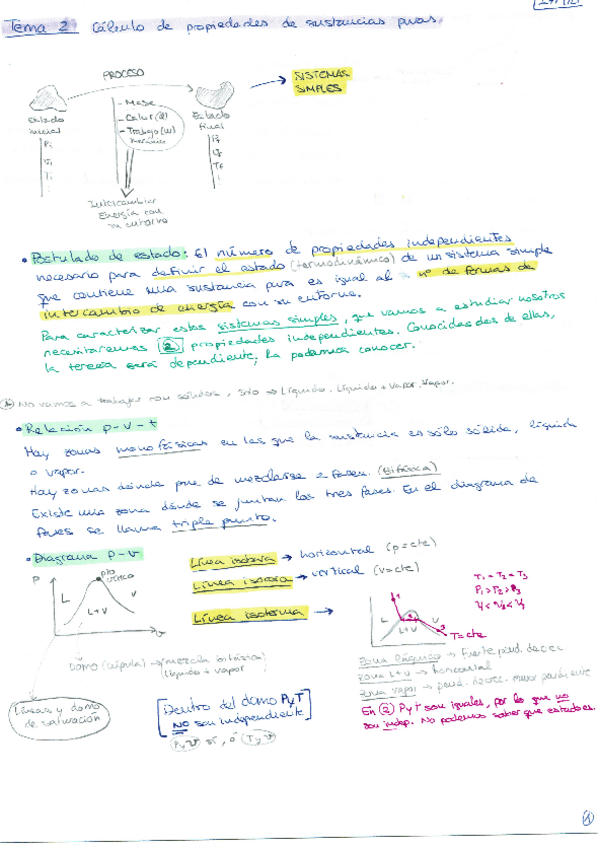 Tema 2 Cálculo de propiedades de sustancias puras.
PROCESO
SISTEMAS
SIMPLES
Estado
inicial
- Masa
- Calor (Q)
- Trabajo (W)
Estado
final
Intercambiar
Energía con
su entorno
• Postulado de estado: El número de propiedades independientes
necesario para definir el estado (termodinámico) de un sistema simple
que contiene una sustancia pura es igual al nº de formas de
intercambio de energía con su entorno.
Para caracterizar estos sistemas simples, que vamos a estudiar nosotros
necesitaremos 2 propiedades independientes. Conocidas dos de ellas,
la tercera será dependiente; la podemos conocer.
No vamos a trabajar con sólidos, sólo → Líquido. Líquido + Vapor. Vapor.
• Relación p-v-t
Hay zonas monofásicas en las que la sustancia es sólo sólida, líquida
o vapor.
Hay zonas donde puede mezclarse 2 fases. (Bifásica)
Existe una zona donde se juntan las tres fases. En el diagrama de
fases se llama triple punto.
• Diagrama p-v
Línea isobara → horizontal (p=cte)
Línea isocora → vertical (v=cte)
Línea isoterma →
P
pto
crítico
L
L+V
V
v
T1 = T2 = T3
L
L+V
V
T=cte
Domo (cúpula) → mezcla bifásica
líquido + vapor
Líneas y domo
de saturación
Dentro del domo P y T
NO son independientes
P y v sí, ó T y v
Zona líquido → Fuerte pend. decrec
Zona L+V → horizontal
Zona vapor → pend. decrec. menor pendiente
En 2 P y T son iguales, por lo que no
son indep. No podemos saber que estado es.
1